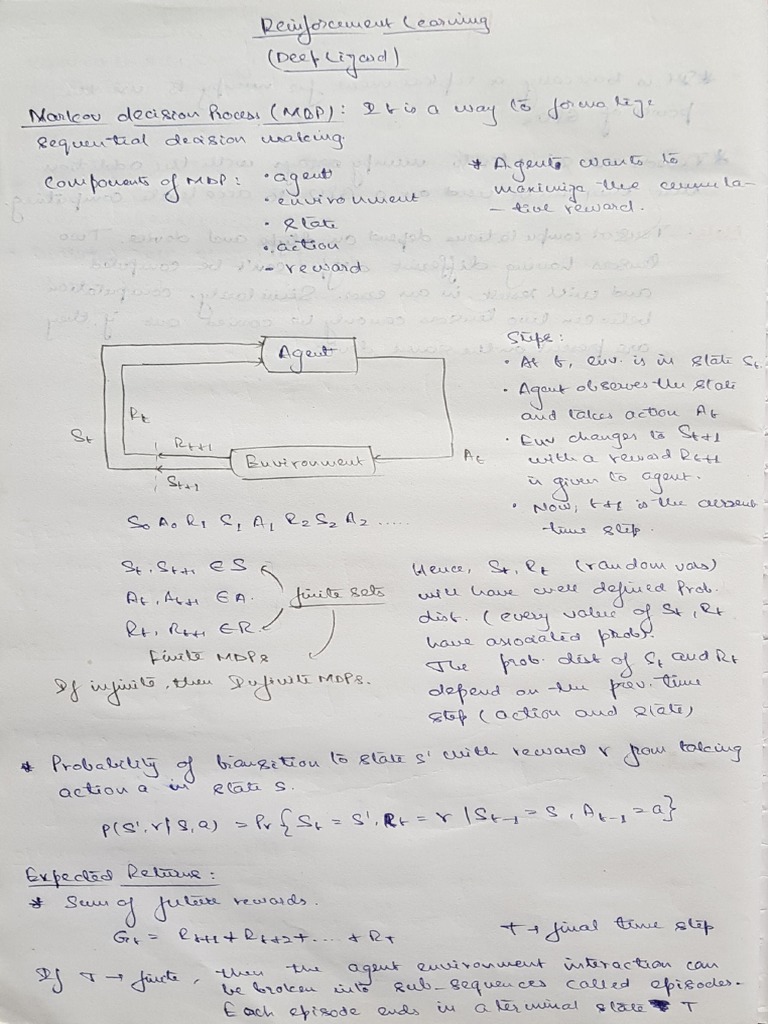 Reinforcement Learning
(Deep Lizard)
Markov decision Process (MDP): It is a way to formalize
sequential decision making.
Components of MDP: • agent
• environment
• state
• action
- reward
* Agents wants to
maximize the cumula-
-tive reward.
Agent
Rt
St
Rt+1
Environment
At
St+1
Steps:
• At t, env. is in state St.
• Agent observes the state
and takes action At
• Env changes to St+1
with a reward Rt+1
is given to agent.
• Now, t+1 is the current
time step.
S0 A0 R1 S1 A1 R2 S2 A2 .....
St, St+1 ∈ S
At, At+1 ∈ A.
Rt, Rt+1 ∈ R.
finite sets
Finite MDPs
If infinite, then Infinite MDPs.
Hence, St, Rt (random vars)
will have well defined Prob.
dist. (every value of St, Rt
have associated prob).
The prob. dist of St and Rt
depend on the prev. time
step (action and state)
* Probability of transition to state s' with reward r from taking
action a in state s.
P(s', r | s, a) = Pr { St = s', Rt = r | St-1 = s, At-1 = a}
Expected Returns:
* Sum of future rewards.
Gt = Rt+1 + Rt+2 + .... + RT
T → final time step
If T → finite, then the agent environment interaction can
be broken into sub-sequences called episodes.
Each episode ends in a terminal state T